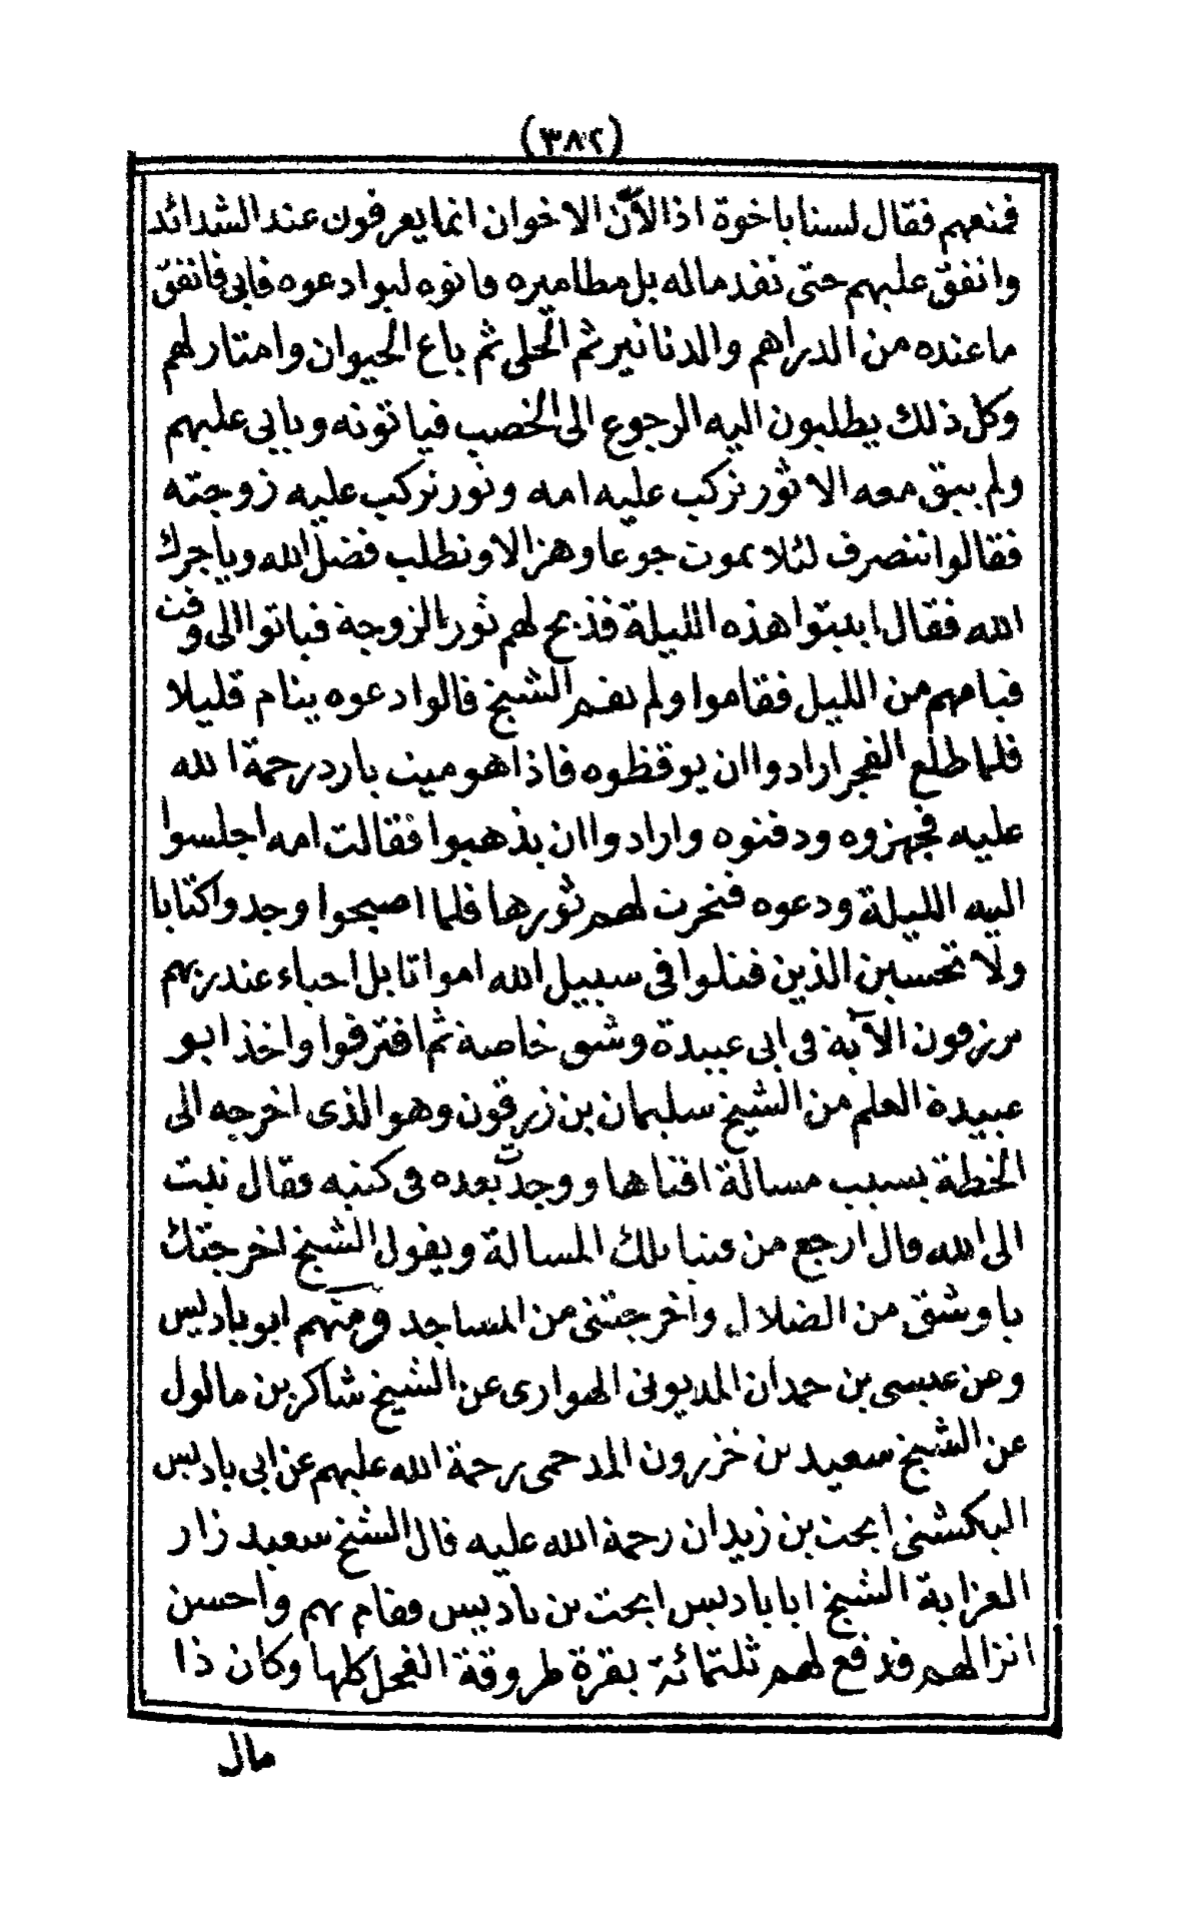 (٣٨٢)
فمنعهم فقال لسنا باخوة اذا الآن الاخوان انما يعرفون عند الشدائد
وانفق عليهم حتى نفد ماله بل مطاميره واتوه ليوادعوه فابى فانفق
ما عنده من الدراهم والدنانير ثم الحلى ثم باع الحيوان وامتار لهم
وكل ذلك يطلبون اليه الرجوع الى الخصب فياتونه ويابى عليهم
ولم يبق معه الا ثور تركب عليه امه وثور تركب عليه زوجته
فقالوا ننصرف لئلا يموت جوعا وهزالا ونطلب فضل الله وياجرك
الله فقال ابيتوا هذه الليلة فذبح لهم ثور الزوجة فباتوا الى وقت
قيامهم من الليل فقاموا ولم يقم الشيخ قالوا دعوه ينام قليلا
فلما طلع الفجر ارادوا ان يوقظوه فاذا هو ميت بارد رحمة الله
عليه فجهزوه ودفنوه وارادوا ان يذهبوا فقالت امه اجلسوا
اليه الليلة ودعوه فنحرت لهم ثورها فلما اصبحوا وجدوا كتابا
ولا تحسبن الذين قتلوا فى سبيل الله امواتا بل احياء عند ربهم
يرزقون الآية فى ابى عبيدة وشق خاصة ثم افترقوا واخذ ابو
عبيدة العلم من الشيخ سليمان بن زرقون وهو الذى اخرجه الى
الخطة بسبب مسالة افتاها ووجدت بعده فى كتبه وقال تبت
الى الله وال ارجع من فتيا تلك المسالة ويقول الشيخ اخرجتك
يا وشق من الضلال واخرجتنى من المساجد ومنهم ابو باديس
وعن عيسى بن حمدان المديونى الهوارى عن الشيخ شاكر بن مالول
عن الشيخ سعيد بن خزرون المدحمى رحمة الله عليهم عن ابى باديس
اليكشنى ابجت بن زيدان رحمة الله عليه قال الشيخ سعيد زار
العزابة الشيخ ابا باديس ابجت بن باديس فقام بهم واحسن
انزالهم فدفع لهم ثلثمائة بقرة طروقة الفحل كلها وكان ذا
مال